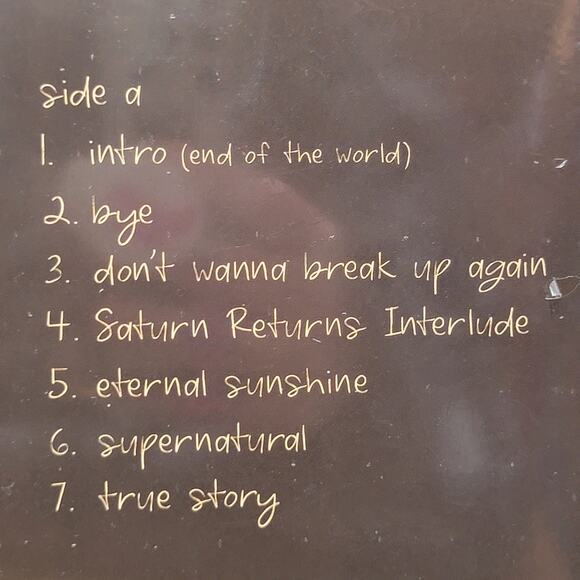 side a
1. intro (end of the world)
2. bye
3. don't wanna break up again
4. Saturn Returns Interlude
5. eternal sunshine
6. supernatural
7. true story